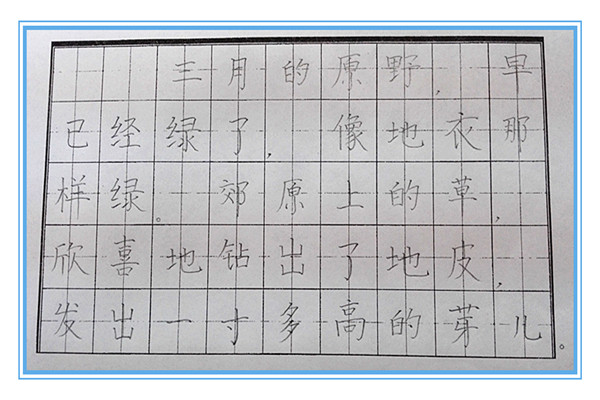 三月的原野,早
已经绿了,像地衣那
样绿。郊原上的草,
欣喜地钻出了地皮,
发出一寸多高的芽儿。